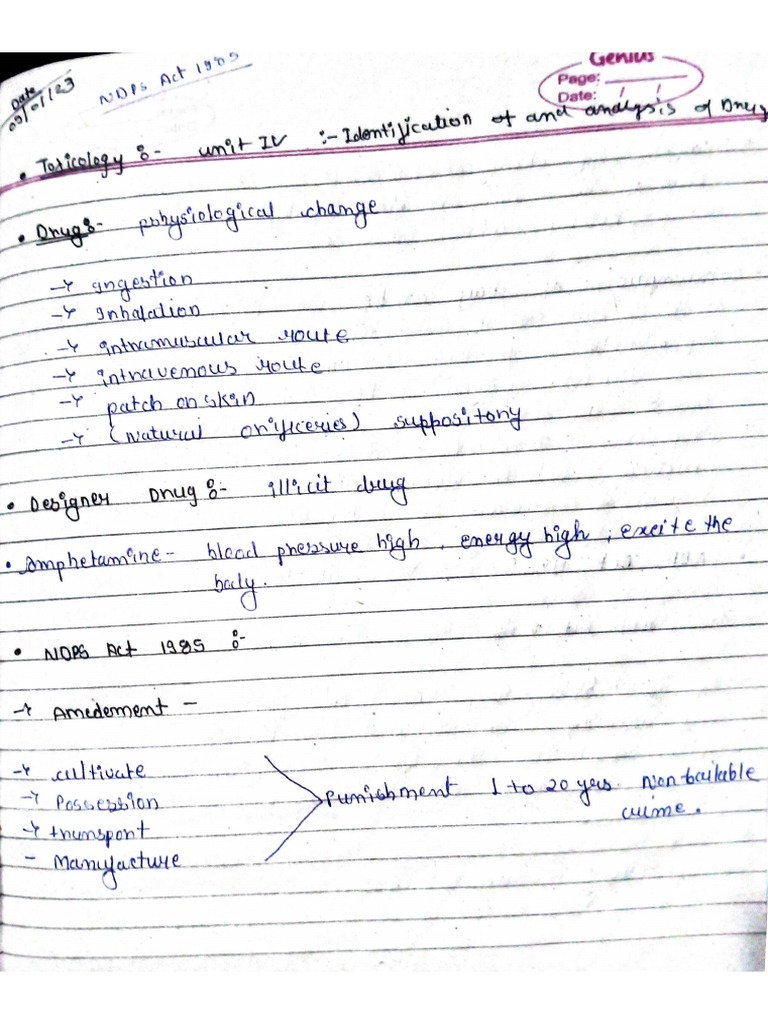 Date
09/01/23
NDPS Act 1985
Genius
Page:
Date: / /
• Toxicology :- unit IV :- Identification of and analysis of Drugs
• Drug :- pohysiological change
→ Ingestion
→ Inhalation
→ intramuscular route
→ intravenous route
→ patch on skin
→ (Natural orificeries) suppository
• Designer Drug :- illicit drug
• Amphetamine - blood pressure high, energy high, excite the
body.
• NDPS Act 1985 :-
→ Amedement -
→ cultivate
→ Possession
→ transport
- Manufacture
Punishment 1 to 20 yers Non bailable
crime.